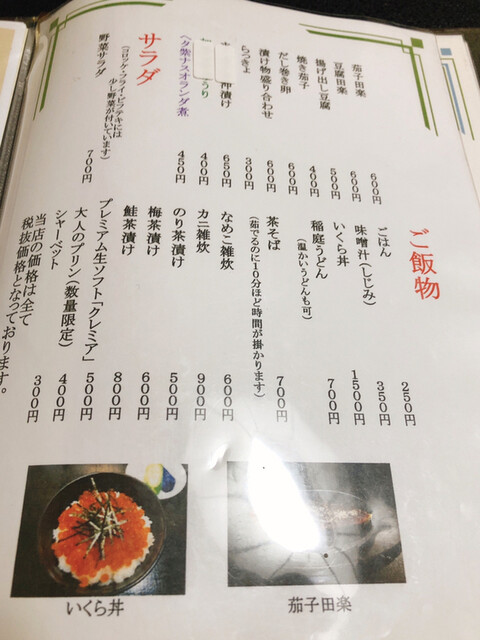 茄子田楽 600円
豆腐田楽 600円
揚げ出し豆腐 500円
焼き茄子 400円
だし巻き卵 600円
漬け物盛り合わせ 600円
らっきょ 300円
沖漬け 650円
うり 400円
ヘタ紫ナスオランダ煮 450円
サラダ
(コロッケ・フライ・ビフテキには
少し野菜が付いています)
野菜サラダ 700円
ご飯物
ごはん 250円
味噌汁(しじみ) 350円
いくら丼 1500円
稲庭うどん 700円
(温かいうどんも可)
茶そば 700円
(茹でるのに10分ほど時間が掛かります)
なめこ雑炊 600円
カニ雑炊 900円
のり茶漬け 500円
梅茶漬け 600円
鮭茶漬け 800円
プレミアム生ソフト「クレミア」 500円
大人のプリン(数量限定) 400円
シャーベット 300円
当店の価格は全て
税抜価格となっております。
いくら丼
茄子田楽